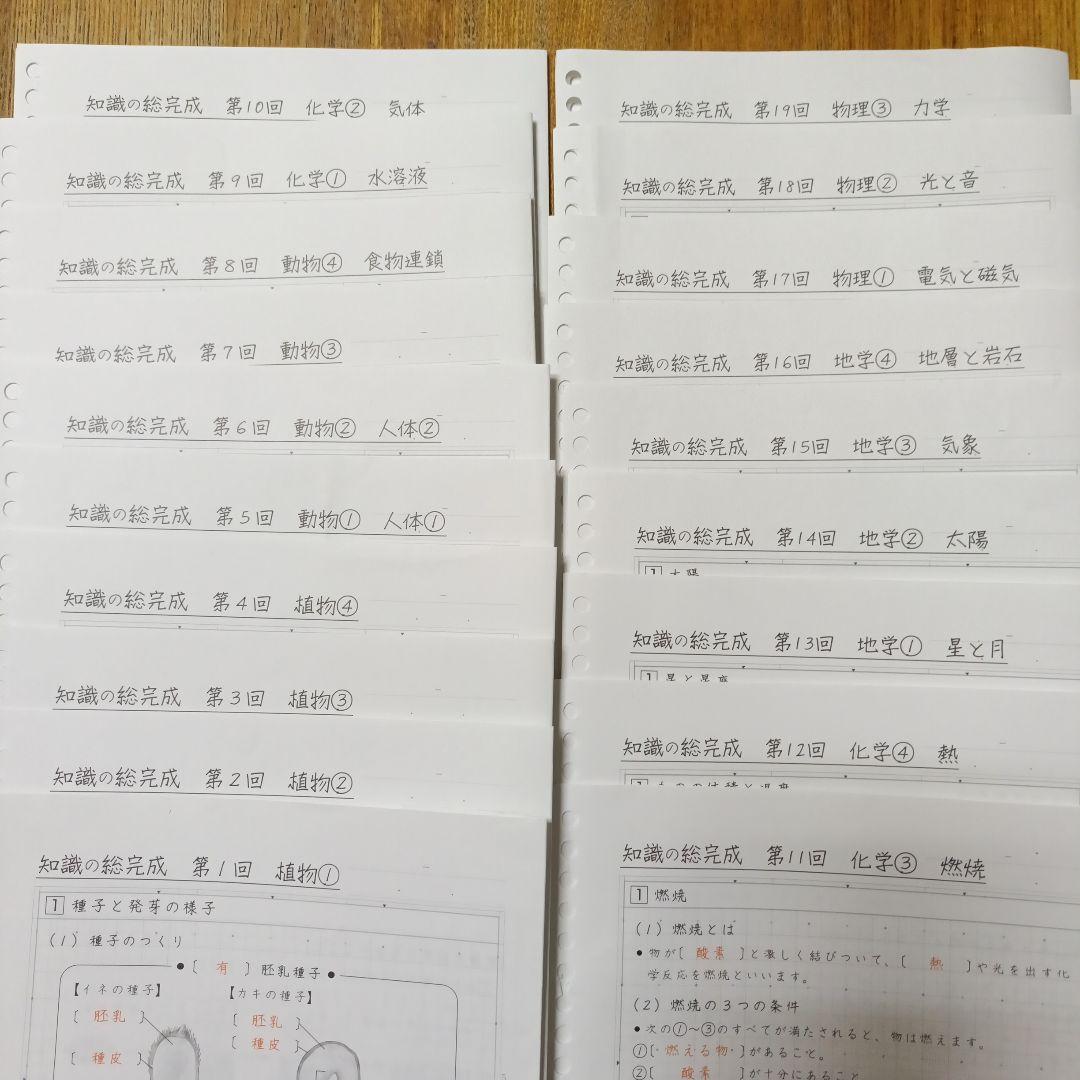 知識の総完成 第10回 化学② 気体
知識の総完成 第9回 化学① 水溶液
知識の総完成 第8回 動物④ 食物連鎖
知識の総完成 第7回 動物③
知識の総完成 第6回 動物② 人体②
知識の総完成 第5回 動物① 人体①
知識の総完成 第4回 植物④
知識の総完成 第3回 植物③
知識の総完成 第2回 植物②
知識の総完成 第1回 植物①
1 種子と発芽の様子
(1) 種子のつくり
●〔 有 〕胚乳種子●
【イネの種子】 【カキの種子】
〔 胚乳 〕 〔 胚乳 〕
〔 種皮 〕 〔 種皮 〕
知識の総完成 第19回 物理③ 力学
知識の総完成 第18回 物理② 光と音
知識の総完成 第17回 物理① 電気と磁気
知識の総完成 第16回 地学④ 地層と岩石
知識の総完成 第15回 地学③ 気象
知識の総完成 第14回 地学② 太陽
1 太陽
知識の総完成 第13回 地学① 星と月
1 星と星座
知識の総完成 第12回 化学④ 熱
1
知識の総完成 第11回 化学③ 燃焼
1 燃焼
(1) 燃焼とは
●物が〔 酸素 〕と激しく結びついて、〔 熱 〕や光を出す化
学反応を燃焼といいます。
(2) 燃焼の3つの条件
●次の①〜③のすべてが満たされると、物は燃えます。
①〔・燃える物・〕があること。
②〔 酸素 〕が十分にあること